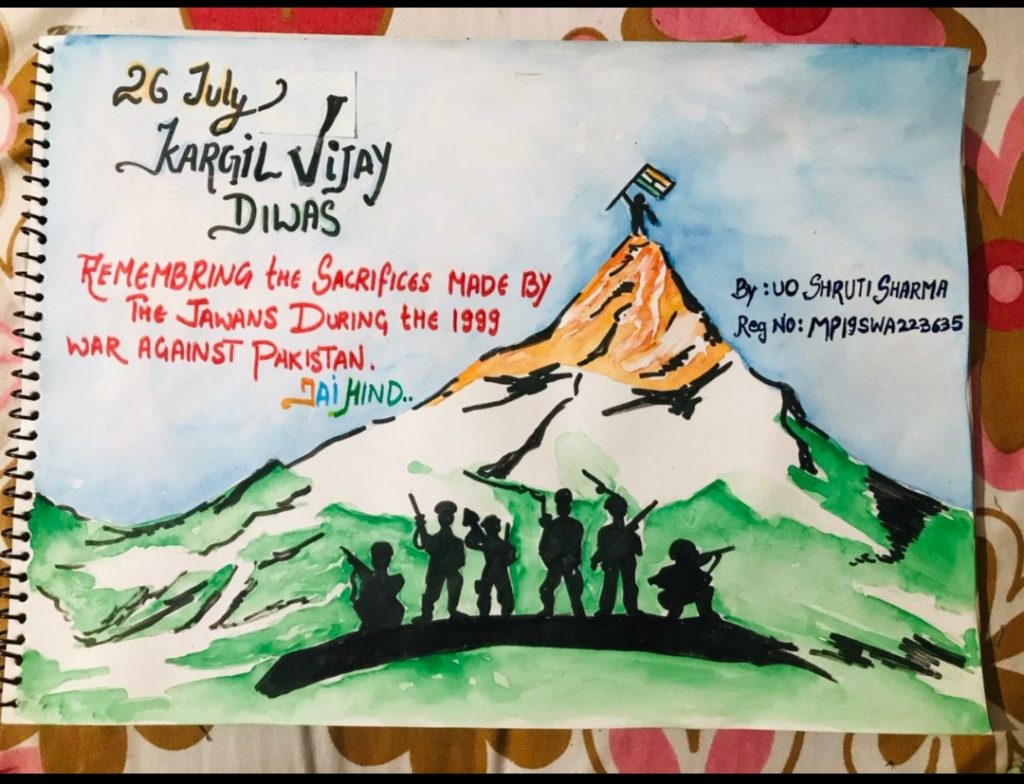 26 July
KARGIL VIJAY
DIWAS
REMEMBRING the SACRIFICES MADE BY
THE JAWANS DURING the 1999
WAR AGAINST PAKISTAN.
JAI HIND..
By : UO SHRUTI SHARMA
Reg No: MP19SWA223635